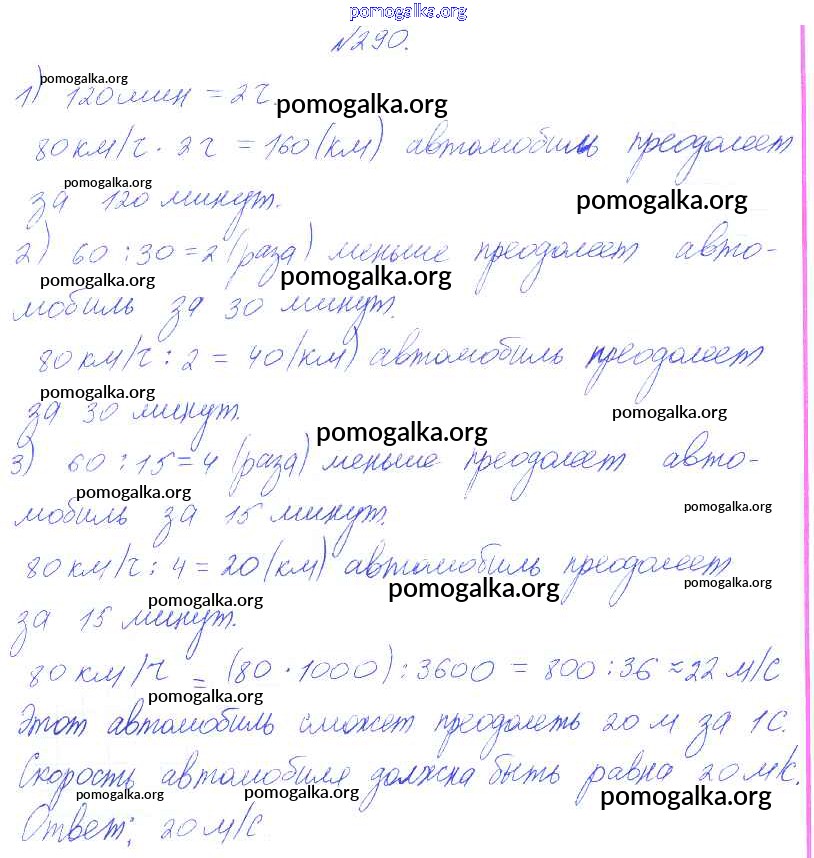 pomogalka.org
№290.
pomogalka.org
1) 120 мин = 2 ч.
pomogalka.org
80 км/ч · 2 ч = 160 (км) автомобиль преодолеет
pomogalka.org
за 120 минут.
pomogalka.org
2) 60 : 30 = 2 (раза) меньше преодолеет авто-
pomogalka.org pomogalka.org
мобиль за 30 минут.
80 км/ч : 2 = 40 (км) автомобиль преодолеет
pomogalka.org
за 30 минут.
pomogalka.org
pomogalka.org
3) 60 : 15 = 4 (раза) меньше преодолеет авто-
pomogalka.org
pomogalka.org
мобиль за 15 минут.
80 км/ч : 4 = 20 (км) автомобиль преодолеет
pomogalka.org pomogalka.org
pomogalka.org
за 15 минут.
80 км/ч = (80 · 1000) : 3600 = 800 : 36 ≈ 22 м/с
pomogalka.org
Этот автомобиль сможет преодолеть 20 м за 1 с.
Скорость автомобиля должна быть равна 20 м/с.
pomogalka.org pomogalka.org pomogalka.org
Ответ: 20 м/с